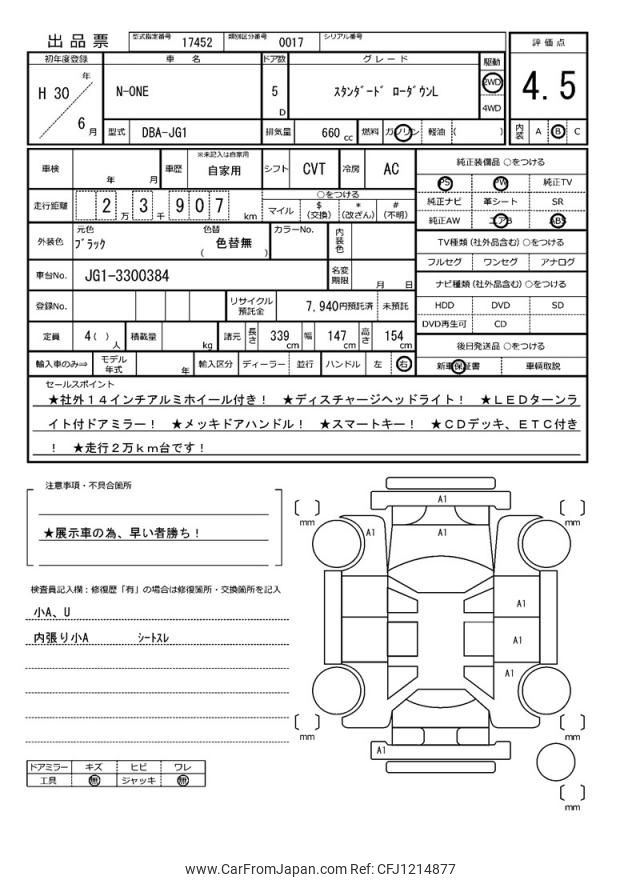 出品票 型式指定番号 17452 類別区分番号 0017 シリアル番号
評価点
4.5
内装 A B C
初年度登録 車名 ドア数 グレード 駆動
H 30 年 6 月
N-ONE 5 D スタンダード ローダウンL 2WD 4WD
型式 DBA-JG1 排気量 660 cc 燃料 ガソリン 軽油 ( )
車検 年 月 車歴 ※未記入は自家用 自家用 シフト CVT 冷房 AC
走行距離 2 万 3 千 9 0 7 km
○をつける
マイル $ (交換) * (改ざん) # (不明)
外装色 元色 ブラック 色替 色替無 ( ) カラーNo. 内装色
車台No. JG1-3300384 名変期限 月 日
登録No. リサイクル預託金 7,940円預託済 未預託
定員 4 ( ) 人 積載量 kg 諸元 長さ 339 cm 幅 147 cm 高さ 154 cm
輸入車のみ⇒ モデル年式 年 輸入区分 ディーラー 並行 ハンドル 左 右
純正装備品 ○をつける
PS PW 純正TV
純正ナビ 革シート SR
純正AW エアB ABS
TV種類(社外品含む) ○をつける
フルセグ ワンセグ アナログ
ナビ種類(社外品含む) ○をつける
HDD DVD SD
DVD再生可 CD
後日発送品 ○をつける
新車保証書 車輌取説
セールスポイント
★社外14インチアルミホイール付き! ★ディスチャージヘッドライト! ★LEDターンラ
イト付ドアミラー! ★メッキドアハンドル! ★スマートキー! ★CDデッキ、ETC付き
! ★走行2万km台です!
注意事項・不具合箇所
★展示車の為、早い者勝ち!
検査員記入欄:修復歴「有」の場合は修復箇所・交換箇所を記入
小A、U
内張り小A シートスレ
ドアミラー キズ ヒビ ワレ
工具 無 ジャッキ 無
A1
mm
mm
A1
A1
A1
A1
A1
mm
mm
A1
mm
www.CarFromJapan.com Ref: CFJ1214877